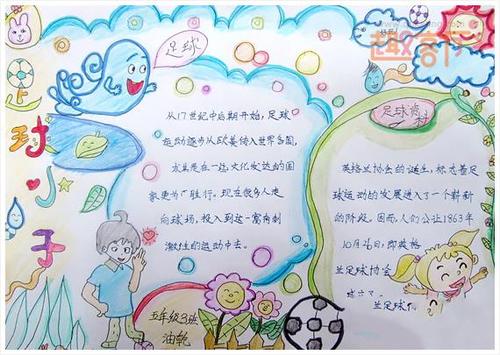 足球
足球小手
从17世纪中后期开始，足球
运动逐步从欧美传入世界各国，
尤其是在一些文化发达的国
家更为广胜行。现在很多人走
向球场，投入到这一富有刺
激性的运动中去。
英格兰协会的诞生，标志着足
球运动的发展进入了一个崭新
的阶段。因而，人们公认1863年
10月26日，即英格
兰足球协会
兰足球
五年级3班
趣